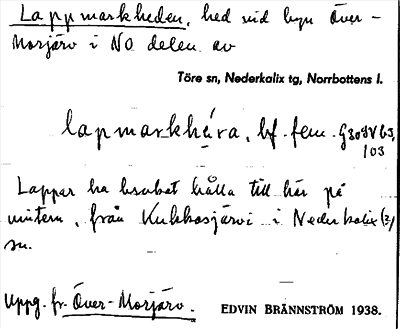 Lappmarkheden, hed vid byn Över-
Morjärv i NO delen av
Töre sn, Nederkalix tg, Norrbottens l.
lapmarkhéra, bf. fem.
103
Lappar ha brukat hålla till här på
vintern, från Kukkasjärvi i Nederkalix (?)
sn.
Uppg. fr. Över-Morjärv. EDVIN BRÄNNSTRÖM 1938.